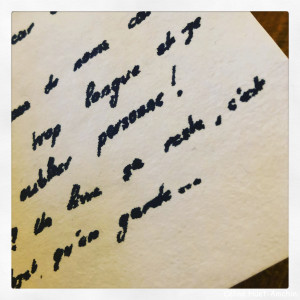 car
de noms
trop longue et je
oublier personne !
? Un livre se reste, c'est
qu'on garde...